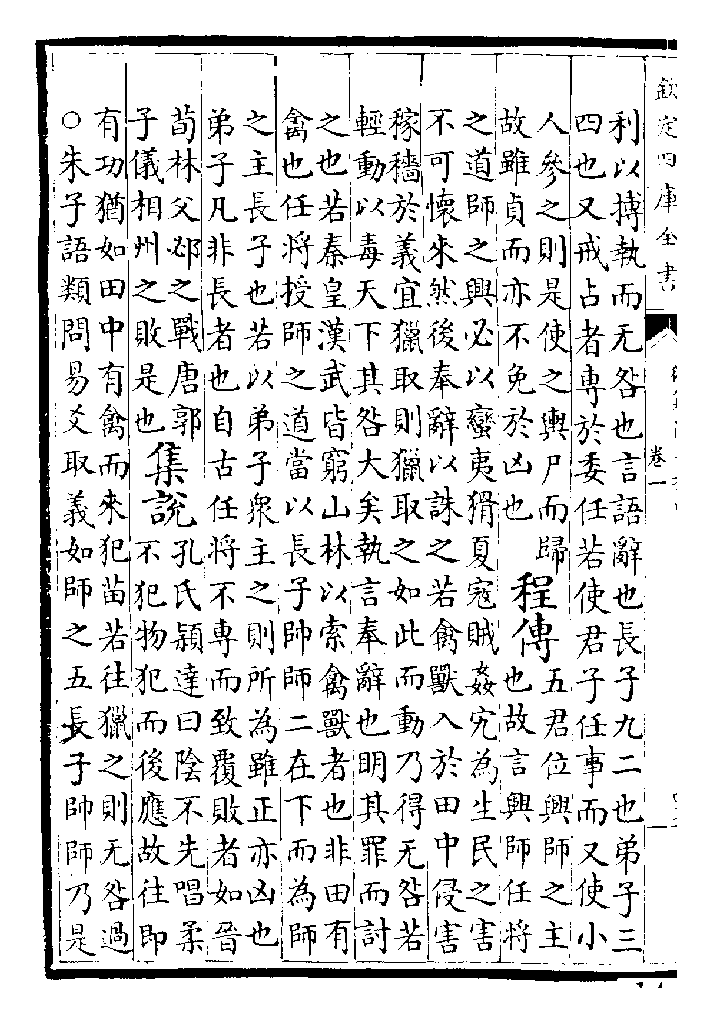 欽定四庫全書
卷一
利以搏執而无咎也言語辭也長子九二也弟子三
四也又戒占者專於委任若使君子任事而又使小
人參之則是使之輿尸而歸
故雖貞而亦不免於凶也
程傳
五君位興師之主
也故言興師任將
之道師之興必以蠻夷猾夏寇賊姦宄為生民之害
不可懷來然後奉辭以誅之若禽獸入於田中侵害
稼穡於義宜獵取則獵取之如此而動乃得无咎若
輕動以毒天下其咎大矣執言奉辭也明其罪而討
之也若秦皇漢武皆窮山林以索禽獸者也非田有
禽也任將授師之道當以長子帥師二在下而為師
之主長子也若以弟子衆主之則所為雖正亦凶也
弟子凡非長者也自古任將不專而致覆敗者如晉
荀林父邲之戰唐郭
子儀相州之敗是也
集說
孔氏穎達曰陰不先唱柔
不犯物犯而後應故往即
有功猶如田中有禽而來犯苗若往獵之則无咎過
○朱子語類問易爻取義如師之五長子帥師乃是